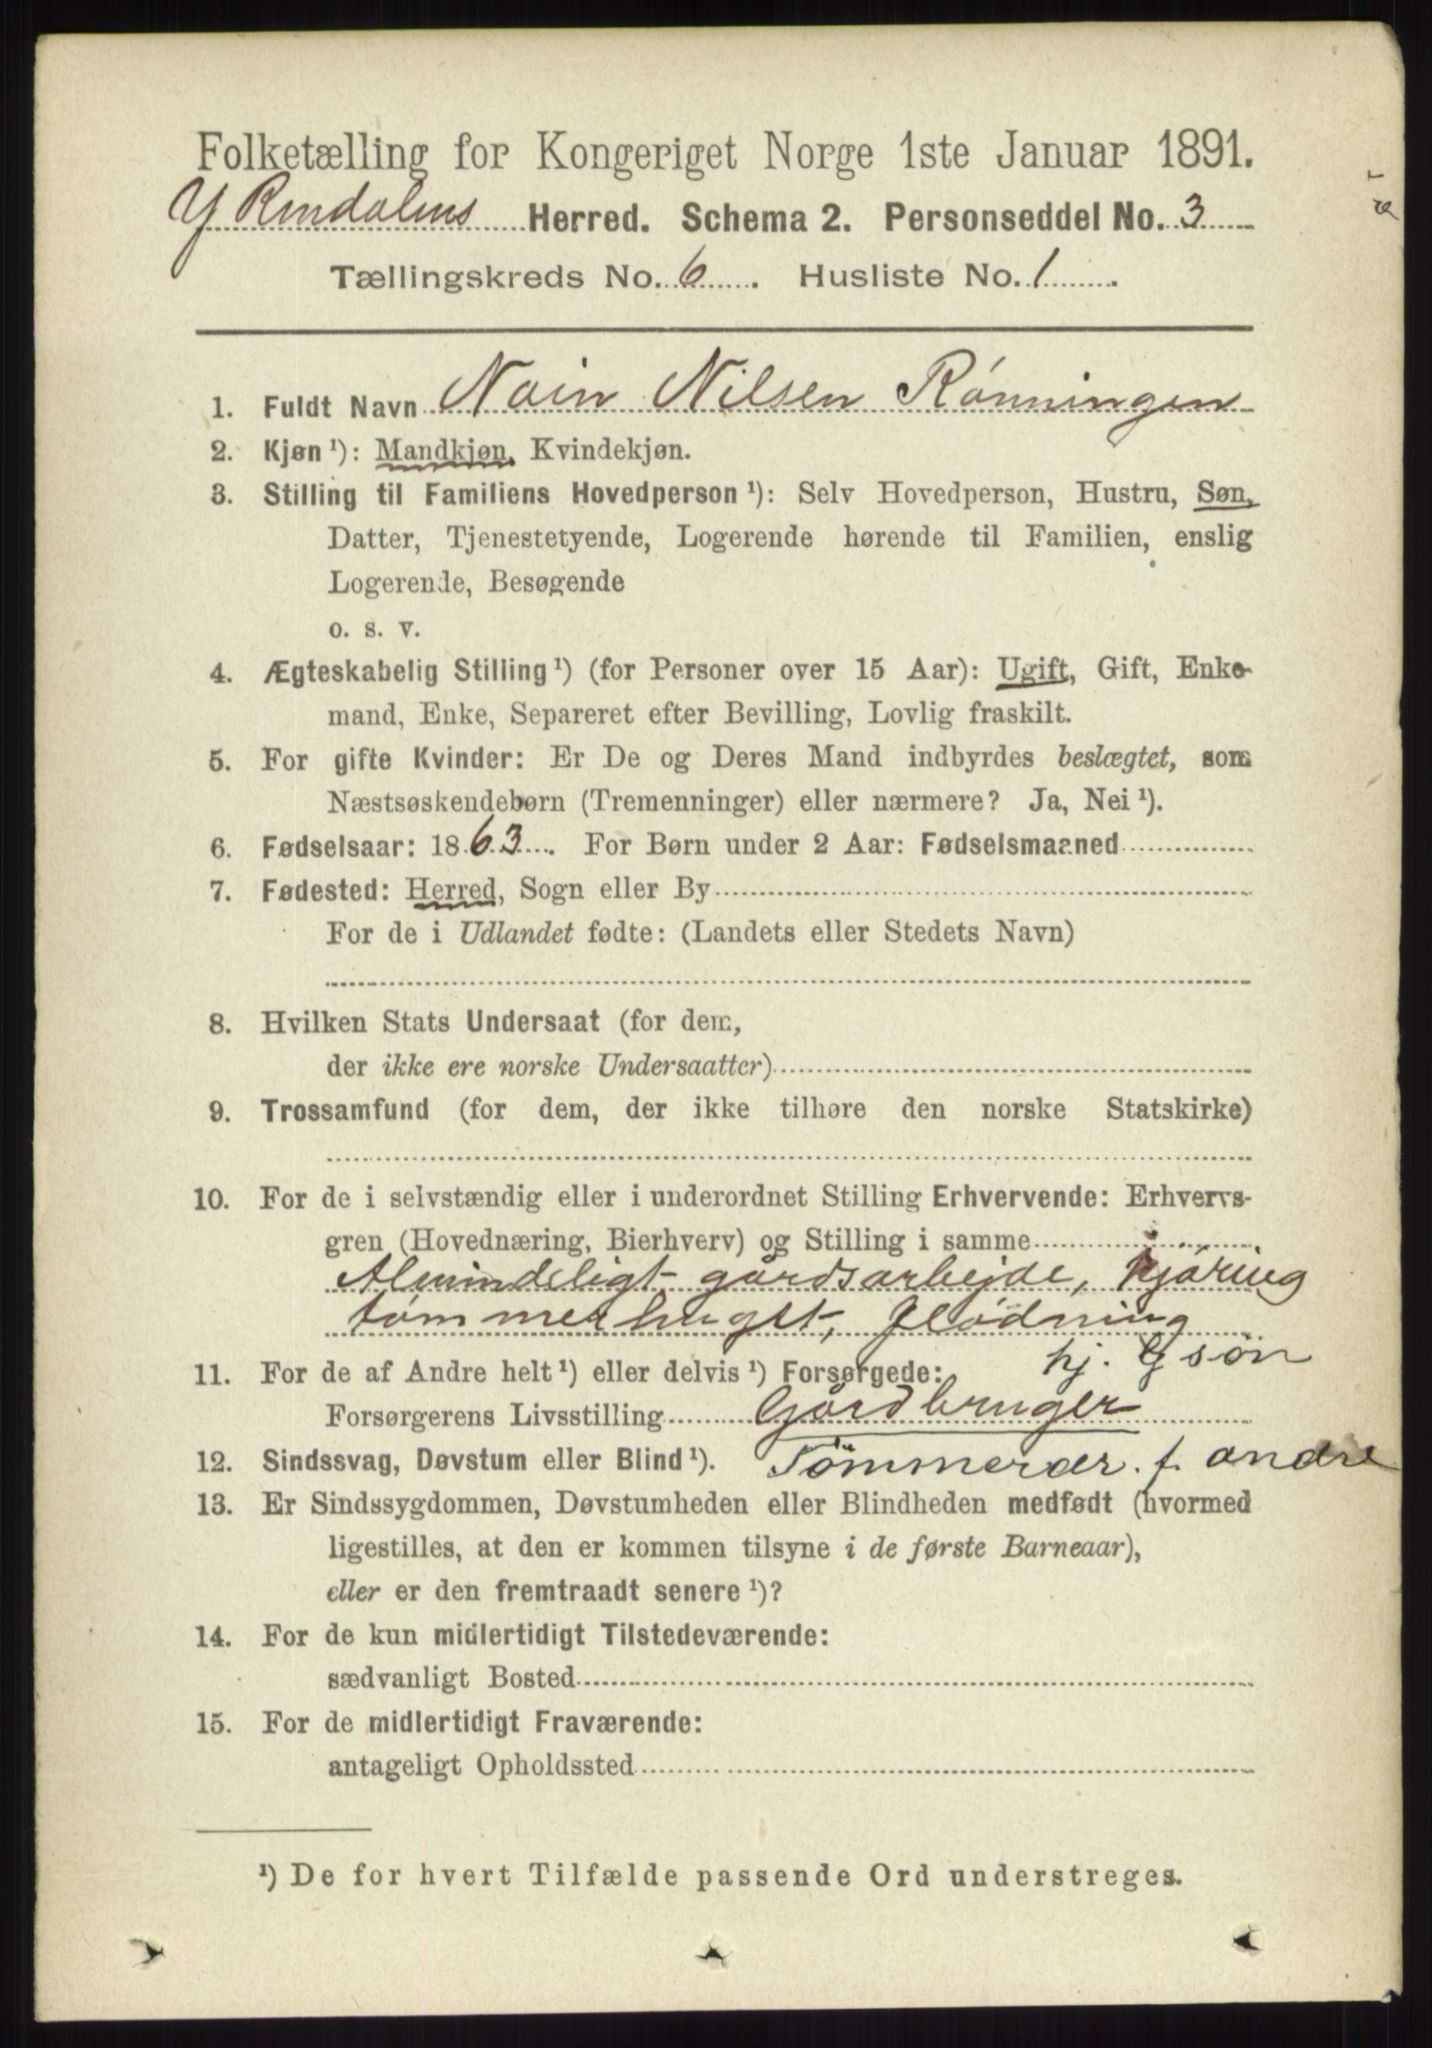 Folketælling for Kongeriget Norge 1ste Januar 1891.
Y Rendalens Herred. Schema 2. Personseddel No. 3
Tællingskreds No. 6. Husliste No. 1.
1. Fuldt Navn Nain Nilsen Rónningen
2. Kjøn ¹): Mandkjøn, Kvindekjøn.
3. Stilling til Familiens Hovedperson ¹): Selv Hovedperson, Hustru, Søn,
Datter, Tjenestetyende, Logerende hørende til Familien, enslig
Logerende, Besøgende
o. s. v.
4. Ægteskabelig Stilling ¹) (for Personer over 15 Aar): Ugift, Gift, Enke-
mand, Enke, Separeret efter Bevilling, Lovlig fraskilt.
5. For gifte Kvinder: Er De og Deres Mand indbyrdes beslægtet, som
Næstsøskendebørn (Tremenninger) eller nærmere? Ja, Nei ¹).
6. Fødselsaar: 1863. For Børn under 2 Aar: Fødselsmaaned
7. Fødested: Herred, Sogn eller By
For de i Udlandet fødte: (Landets eller Stedets Navn)
8. Hvilken Stats Undersaat (for dem,
der ikke ere norske Undersaatter)
9. Trossamfund (for dem, der ikke tilhøre den norske Statskirke)
10. For de i selvstændig eller i underordnet Stilling Erhvervende: Erhvervs-
gren (Hovednæring, Bierhverv) og Stilling i samme
Almindeligt gårdsarbejde, kjóring
tómmerhugst, flódning
hj. G søn
11. For de af Andre helt ¹) eller delvis ¹) Forsørgede:
Forsørgerens Livsstilling Gårdbruger
12. Sindssvag, Døvstum eller Blind ¹). f. andre
13. Er Sindssygdommen, Døvstumheden eller Blindheden medfødt (hvormed
ligestilles, at den er kommen tilsyne i de første Barneaar),
eller er den fremtraadt senere ¹)?
14. For de kun midlertidigt Tilstedeværende:
sædvanligt Bosted
15. For de midlertidigt Fraværende:
antageligt Opholdssted
¹) De for hvert Tilfælde passende Ord understreges.